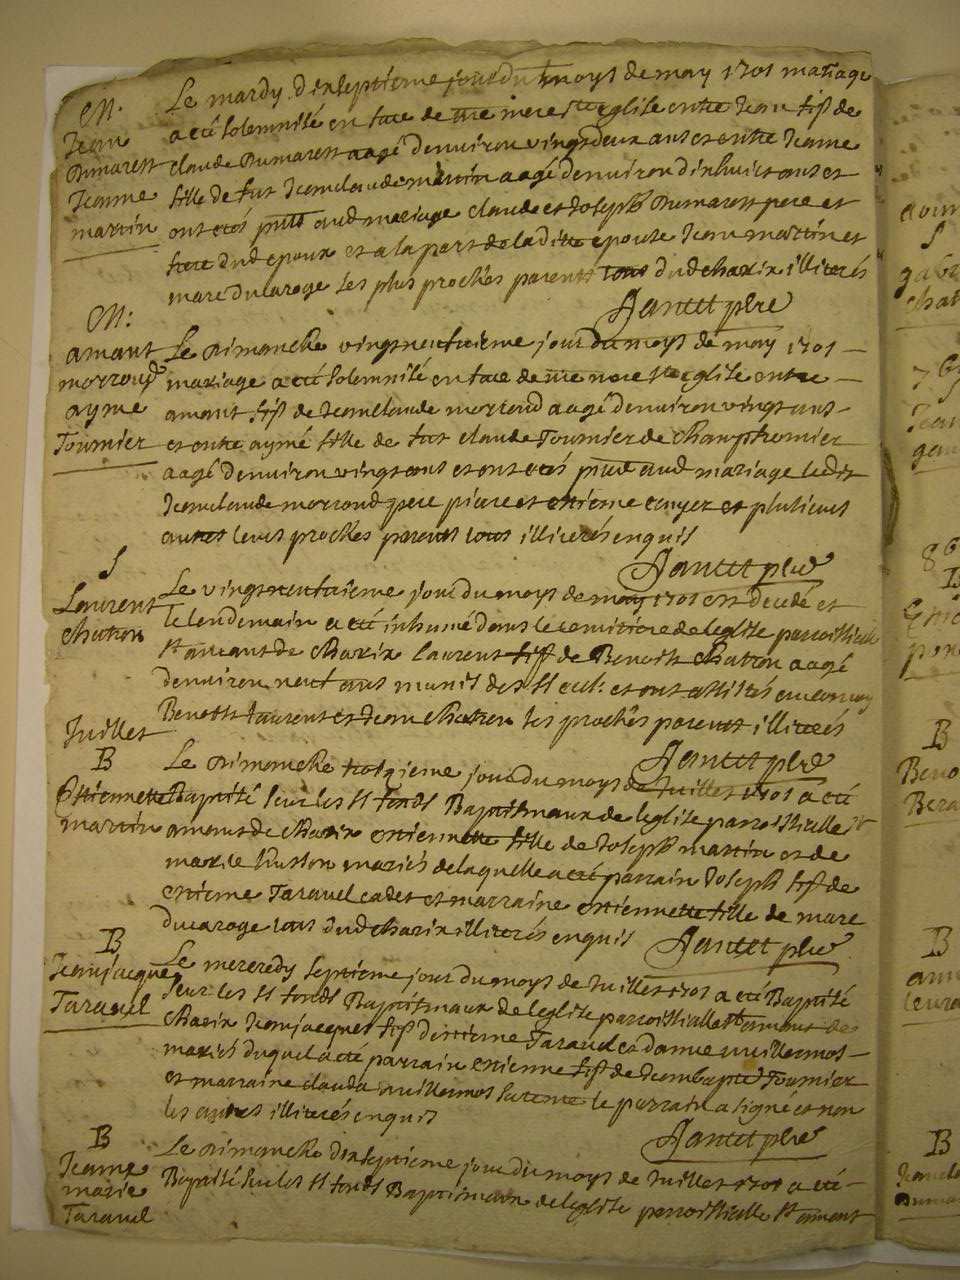 M.
Jean
Dumarest
Jeanne
martin
Le mardy dixseptieme jour du moys de may 1701 mariage
a eté solemnisé en face de nre mere ste eglise entre Jean fils de
claude Dumarest aagé denviron vingtdeux ans et entre Jeanne
fille de fut Jeanclaude martin aagé denviron dixhuict ans et
ont etés pnts aud mariage claude et Joseph Dumarest pere et
frere dud epoux et a la part de laditte epouse Jean martin et
marc ducaroge les plus proches parents tous dud charix illiterés
Jantet pbre
M:
amant
morrond
ayme
Tournier
Le Dimanche vingtneufuieme jour du moys de may 1701
mariage a eté solemnisé en face de nre mere ste eglise entre
amant fils de Jeanclaude morrond aagé denviron vingt ans
et entre aymé fille de fut claude Tournier de champfromier
aagé denviron vingt ans et ont etés pnts aud mariage ledit
Jeanclaude morrond pere piere et estienne et plusieurs
autres leurs proches parents tous illiterés enquis
Jantet pbre
S
Laurent
chatron
Le vingtneufuieme jour du moys de may 1701 est decedé et
le lendemain a eté inhumé dans le cemitiere de leglise parroissialle
st amant de charix laurent fils de Benoist chatron aagé
denviron neuf ans munis des SS et ont assistés au convoy
Benoist laurent et Jean chatron les proches parents illiterés
Jantet pbre
Juillet
B
Estiennette
martin
Le Dimanche troisieme jour du moys de Juillet 1701 a eté
Baptisé sur les SS fonds Baptismaux de leglise parroissialle st
amant de charix estiennette fille de Joseph martin et de
marie husson mariés de laquelle a eté parrain Joseph fils de
estienne Taravel cadet et marraine estiennette fille de marc
ducaroge tous dud charix illiterés enquis
Jantet pbre
B
Jeanjacque
Taravel
Le mercredy septieme jour du moys de Juillet 1701 a eté Baptisé
sur les SS fonds Baptismaux de leglise parroissialle st amant de
charix Jeanjacques fils destienne Taravel et danne vuillermos
mariés duquel a eté parrain estienne fils de Jeanbaptte Tournier
et marraine clauda vuillermos le parrain a signé et non
les autres illiterés enquis
Jantet pbre
B
Jeanne
marie
Taravel
Le Dimanche dixseptieme jour du moys de Juillet 1701 a eté
Baptisé sur les SS fonds Baptismaux de leglise parroissialle st amant